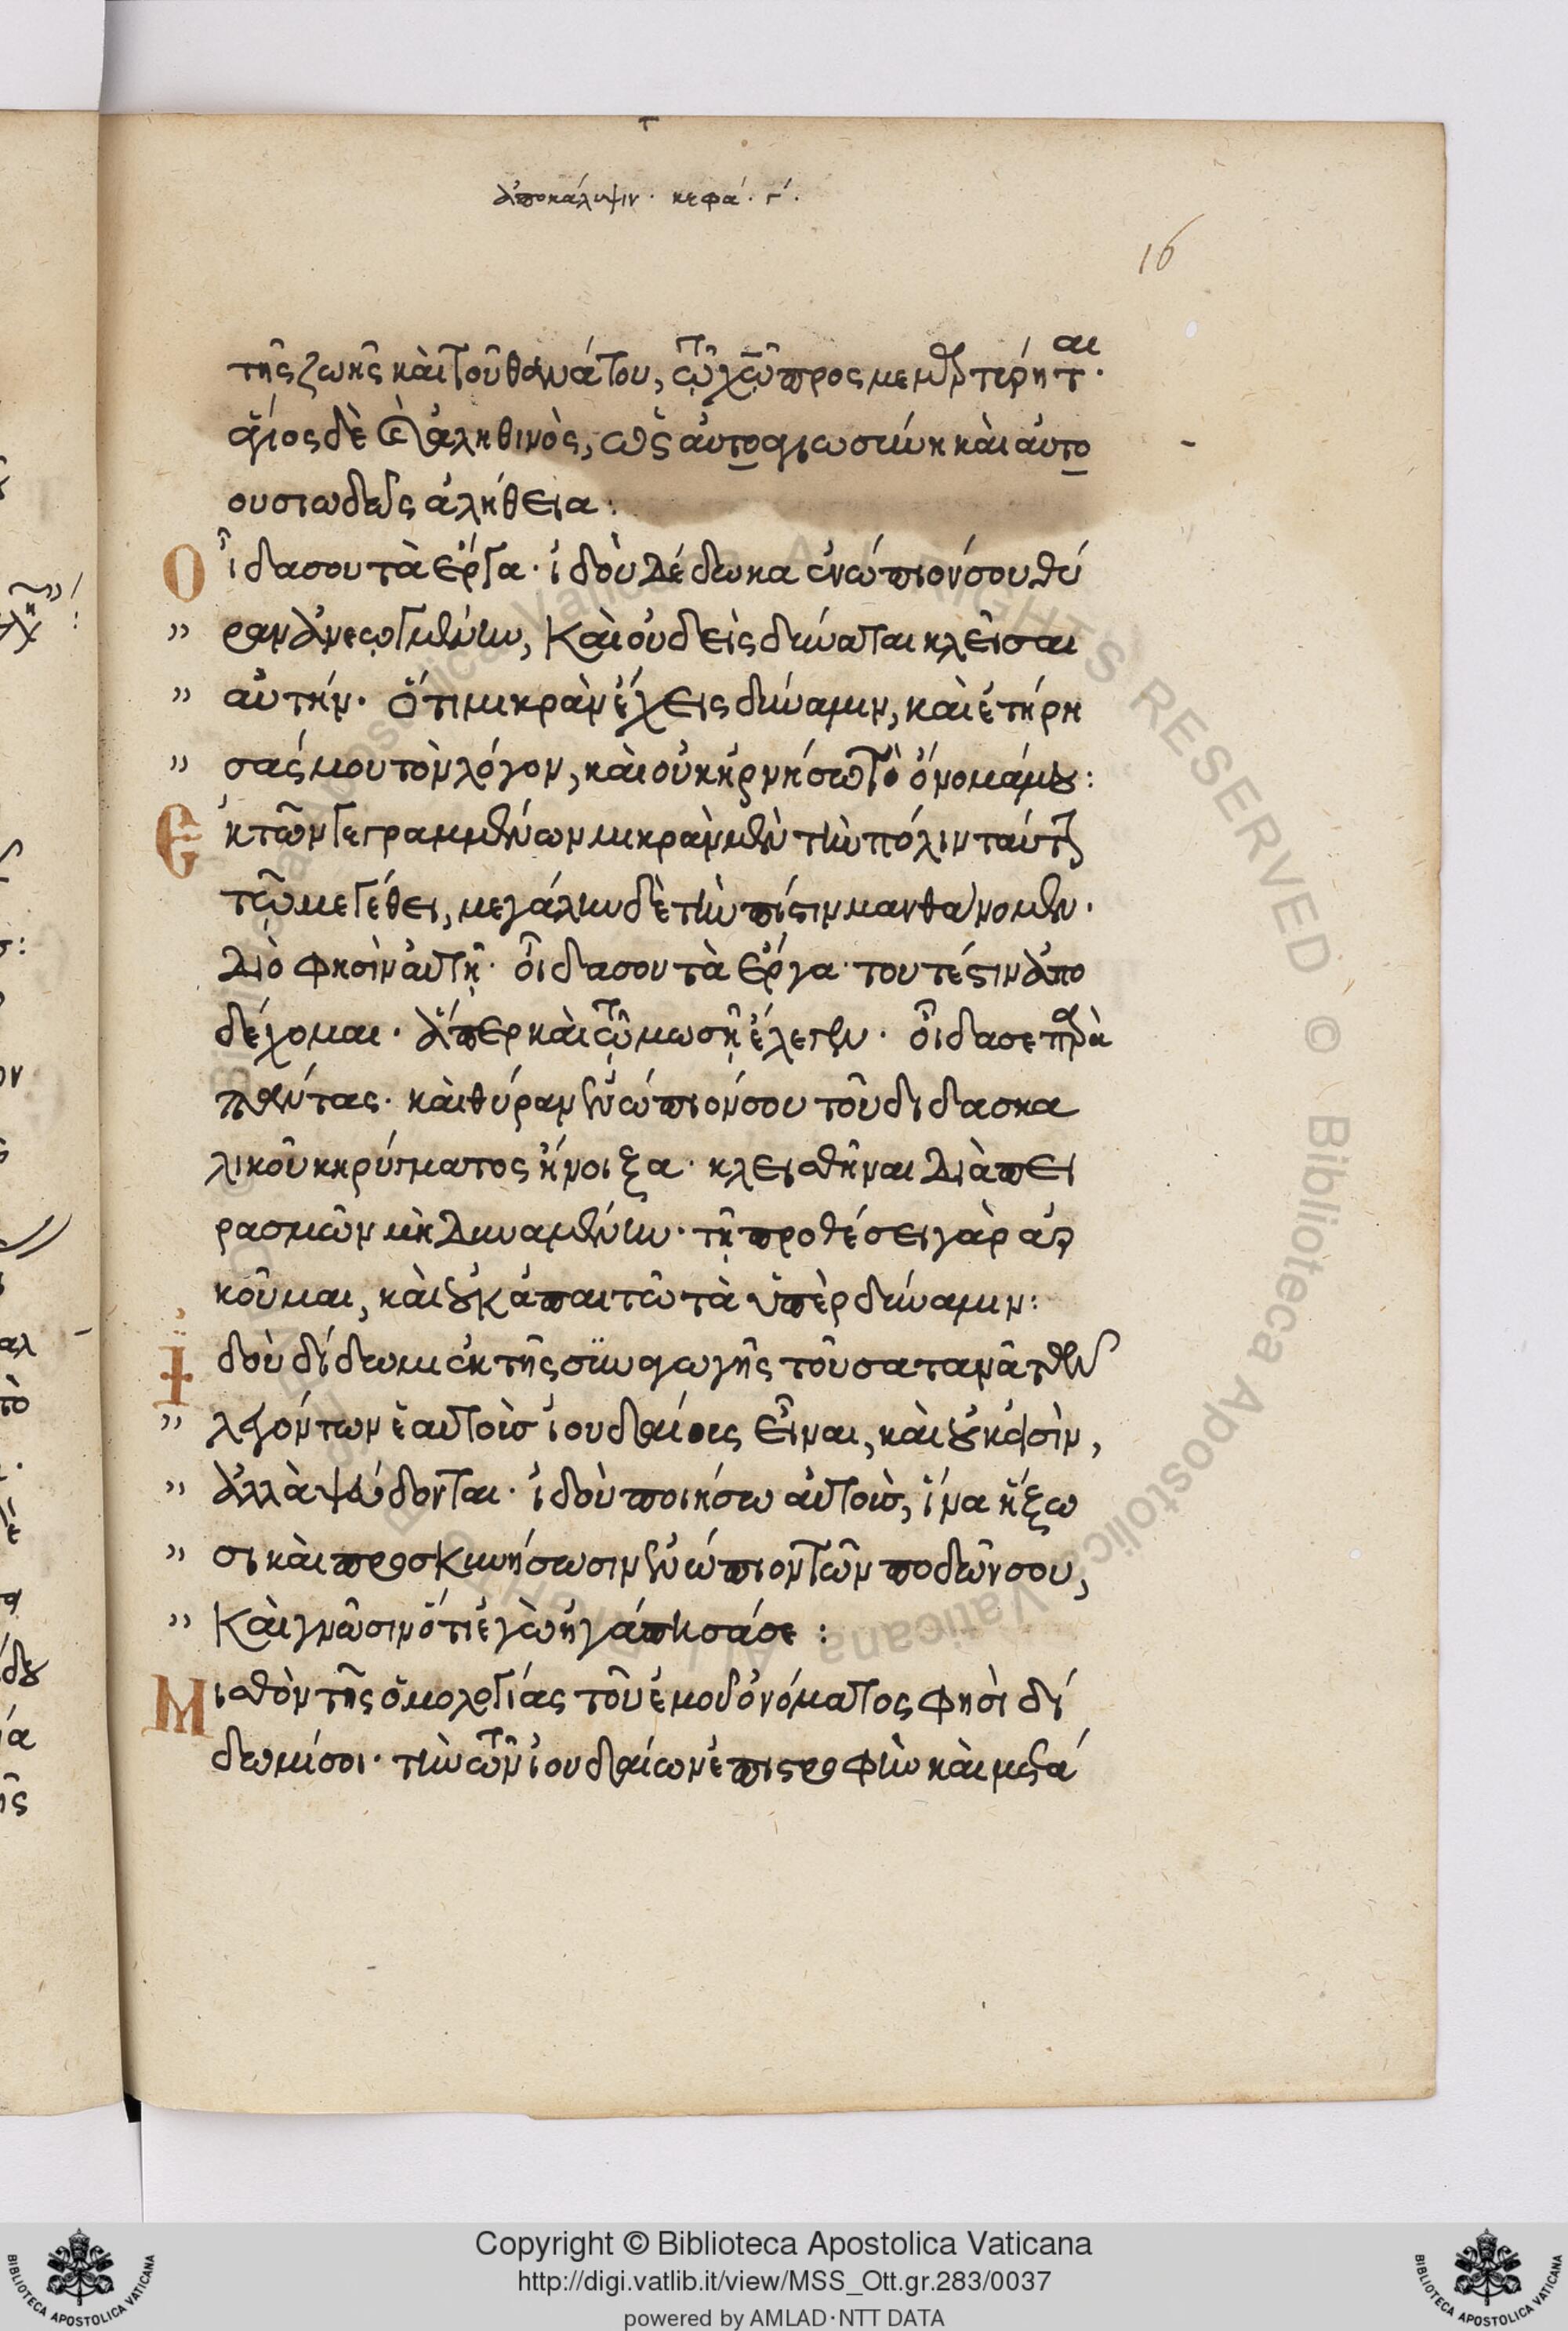 ἀποκάλυψιν· κεφά· γ΄·
16
τῆς ζωῆς καὶ τοῦ θανάτου, τῷ χῷ προς μεμαρτύρηται·
ἅγιος δὲ ὁ ἀληθινὸς, ὡς αὐτοαγιωσύνη καὶ αὐτο
ουσιωδῶς ἀλήθεια:
Οἶδα σου τὰ ἔργα· ἰδοὺ δέδωκα ἐνώπιόν σου θύ
ραν ἀνεῳγμένην, καὶ οὐδεὶς δύναται κλεῖσαι
αὐτήν· ὅτι μικρὰν ἔχεις δύναμιν, καὶ ἐτήρη
σάς μου τὸν λόγον, καὶ οὐκ ἠρνήσω τὸ ὄνομά μου:
Ἐκ τῶν γεγραμμένων μικρὰν μὲν τὴν πόλιν ταύτην
τῷ μεγέθει, μεγάλην δὲ τὴν πίστιν μανθάνομεν·
διό φησὶν αὐτῇ· οἶδα σου τὰ ἔργα· τουτέστιν ἀπο
δέχομαι· ἅπερ καὶ τῷ μωσῇ ἔλεγεν· οἶδα σε παρὰ
πάντας· καὶ θύραν ἐνώπιόν σου τοῦ διδασκα
λικοῦ κηρύγματος ἤνοιξα· κλεισθῆναι διὰ πει
ρασμῶν μὴ δυναμένην· τῇ προθέσει γὰρ ἀρ
κοῦμαι, καὶ οὐκ ἀπαιτῶ τὰ ὑπὲρ δύναμιν:
Ἰδοὺ δίδωμι ἐκ τῆς συναγωγῆς τοῦ σατανᾶ τῶν
λεγόντων ἑαυτοὺς ἰουδαίους εἶναι, καὶ οὐκ εἰσὶν,
ἀλλὰ ψεύδονται· ἰδοὺ ποιήσω αὐτοὺς, ἵνα ἥξω
σι καὶ προσκυνήσωσιν ἐνώπιον τῶν ποδῶν σου,
καὶ γνῶσιν ὅτι ἐγὼ ἠγάπησά σε:
Μισθὸν τῆς ὁμολογίας τοῦ ἐμοῦ ὀνόματος φησὶ δί
δωμί σοι· τὴν τῶν ἰουδαίων ἐπιστροφὴν καὶ μετά
Copyright © Biblioteca Apostolica Vaticana
http://digi.vatlib.it/view/MSS_Ott.gr.283/0037
powered by AMLAD·NTT DATA